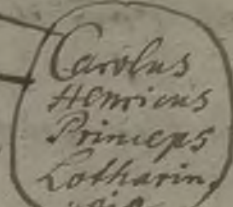 Carolus
Henricus
Princeps
Lotharin.